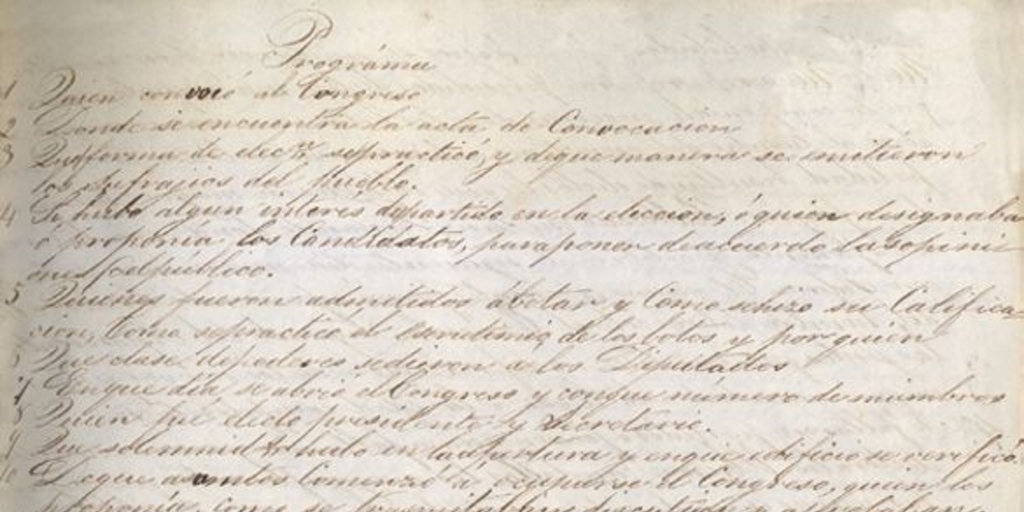 Prográma
1 Quien convocó al Congreso
2 Donde se encuentra la acta de Convocacion
3 Qué forma de elecn. sepracticó, y deque manera se emitieron
los sufrajios del Pueblo.
4 Si hubo algun interés departido en la eleccion, ó quien designaba
ó proponía los Candidatos, paraponer deacuerdo lasopini
ones delpúblico.
5 Quienes fueron admitidos abotar y Como sehizo su Califica-
cion, Como sepractico el escrutinio de los botos y por quien
Que clase depoderes sedieron a los Diputados
7 Enque dia, se abrió elCongreso y conque número demiembros
8 Quien fue electo presidente y Secretario.
9 Que solemnidad hubo en laapertura y enque edificio se verificó.
Deque asuntos Comenzó á ocuparse el Congreso, quien los
proponía, como se